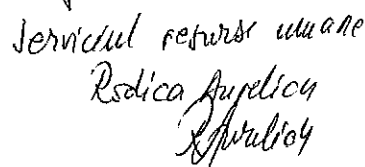 Serviciul resurse umane
Rodica Angelica